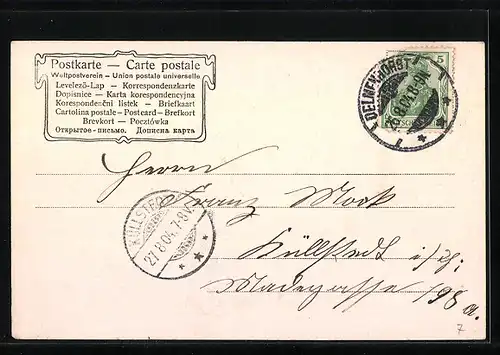 Postkarte — Carte postale
Weltpostverein – Union postale universelle
Levelező-Lap — Korrespondenzkarte
Dopisnice – Karta korespondencyjna
Korespondenční listek – Briefkaart
Cartolina postale – Postcard – Brefkort
Brevkort — Pocztówka
Открытое-письмо. Дописна карта
5
DELMENHORST
.8.04. 8-9N.
1
Herrn
Franz Mock
KÜLLSTEDT
27.8.04. 7-8V.
Küllstedt i/Th.
Madegasse 198 a.
7